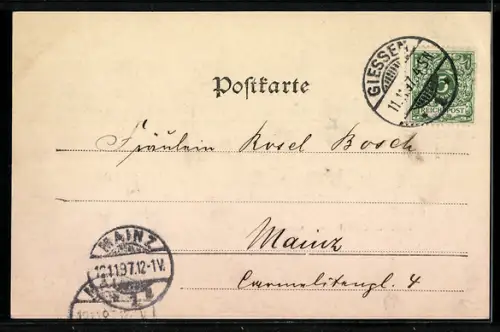 Postkarte
GIESSEN
11.11.97. 4-5N.
5
REICHSPOST
Fräulein Rosel Bosch
Mainz
Carmelitengl. 4
MAINZ
12.11.97. 12-1V.
1